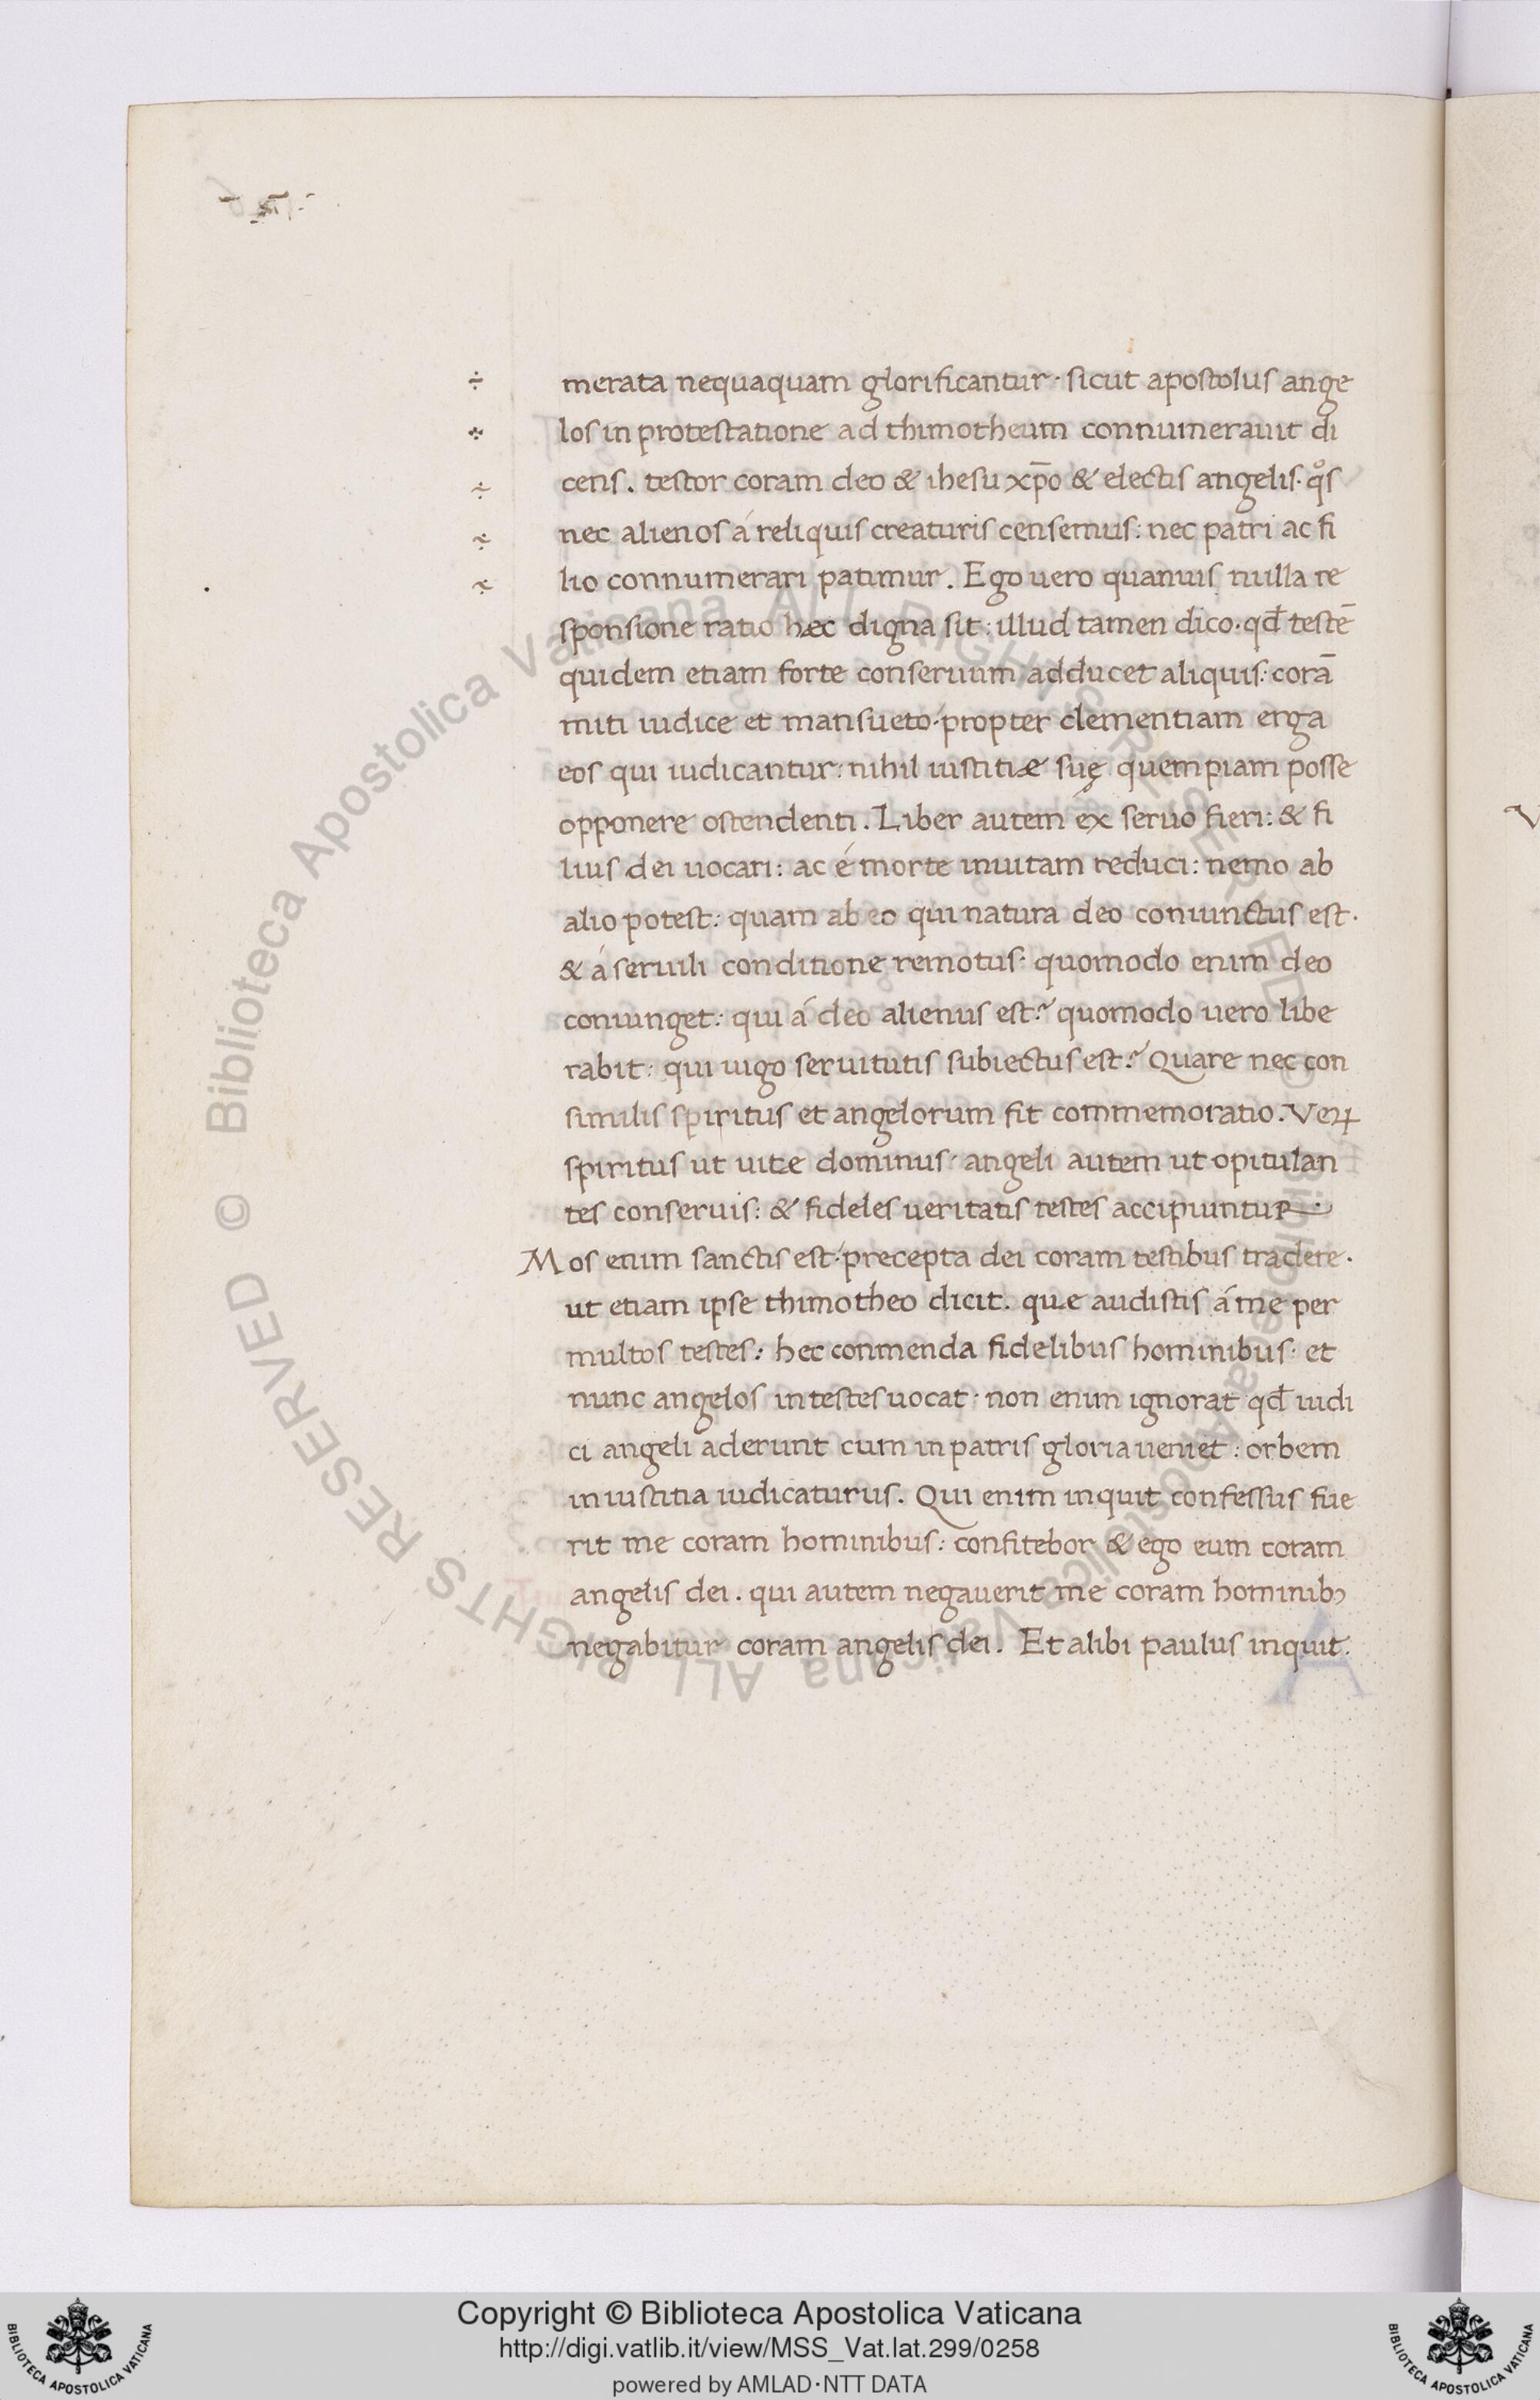 merata nequaquam glorificantur · sicut apostolus ange
los in protestatione ad thimotheum connumerauit di
cens . testor coram deo & ihesu xp̄o & electis angelis · qͦs
nec alienos á reliquis creaturis censemus : nec patri ac fi
lio connumerari patimur . Ego uero quanuis nulla re
sponsione ratio hæc digna sit : illud tamen dico · qđ testē
quidem etiam forte conseruum adducet aliquis : corā
miti iudice et mansueto · propter clementiam erga
eos qui iudicantur : nihil iustitiæ suę quempiam posse
opponere ostendenti . Liber autem éx seruo fieri : & fi
lius dei uocari : ac é morte inuitam reduci : nemo ab
alio potest : quam ab eo qui natura deo coniunctus est ·
& á seruili conditione remotus : quomodo enim deo
coniunget : qui á deo alienus est ? quomodo uero libe
rabit : qui iugo seruitutis subiectus est ? Quare nec con
similis spiritus et angelorum fit commemoratio . Veꝝ
spiritus ut uitæ dominus · angeli autem ut opitulan
tes conseruis : & fideles ueritatis testes accipiuntur
Mos enim sanctis est · precepta dei coram testibus tradere .
ut etiam ipse thimotheo dicit . quæ audistis á me per
multos testes : hec conmenda fidelibus hominibus · et
nunc angelos in testes uocat · non enim ignorat qđ iudi
ci angeli aderunt cum in patris gloria ueniet : orbem
in iustitia iudicaturus . Qui enim inquit confessus fue
rit me coram hominibus : confitebor & ego eum coram
angelis dei . qui autem negauerit me coram hominibꝫ
negabitur coram angelis dei . Et alibi paulus inquit .
© Biblioteca Apostolica Vaticana ALL RIGHTS RESERVED
© Biblioteca Apostolica Vaticana ALL RIGHTS RESERVED
Copyright © Biblioteca Apostolica Vaticana
http://digi.vatlib.it/view/MSS_Vat.lat.299/0258
powered by AMLAD·NTT DATA
BIBLIOTECA APOSTOLICA VATICANA
BIBLIOTECA APOSTOLICA VATICANA